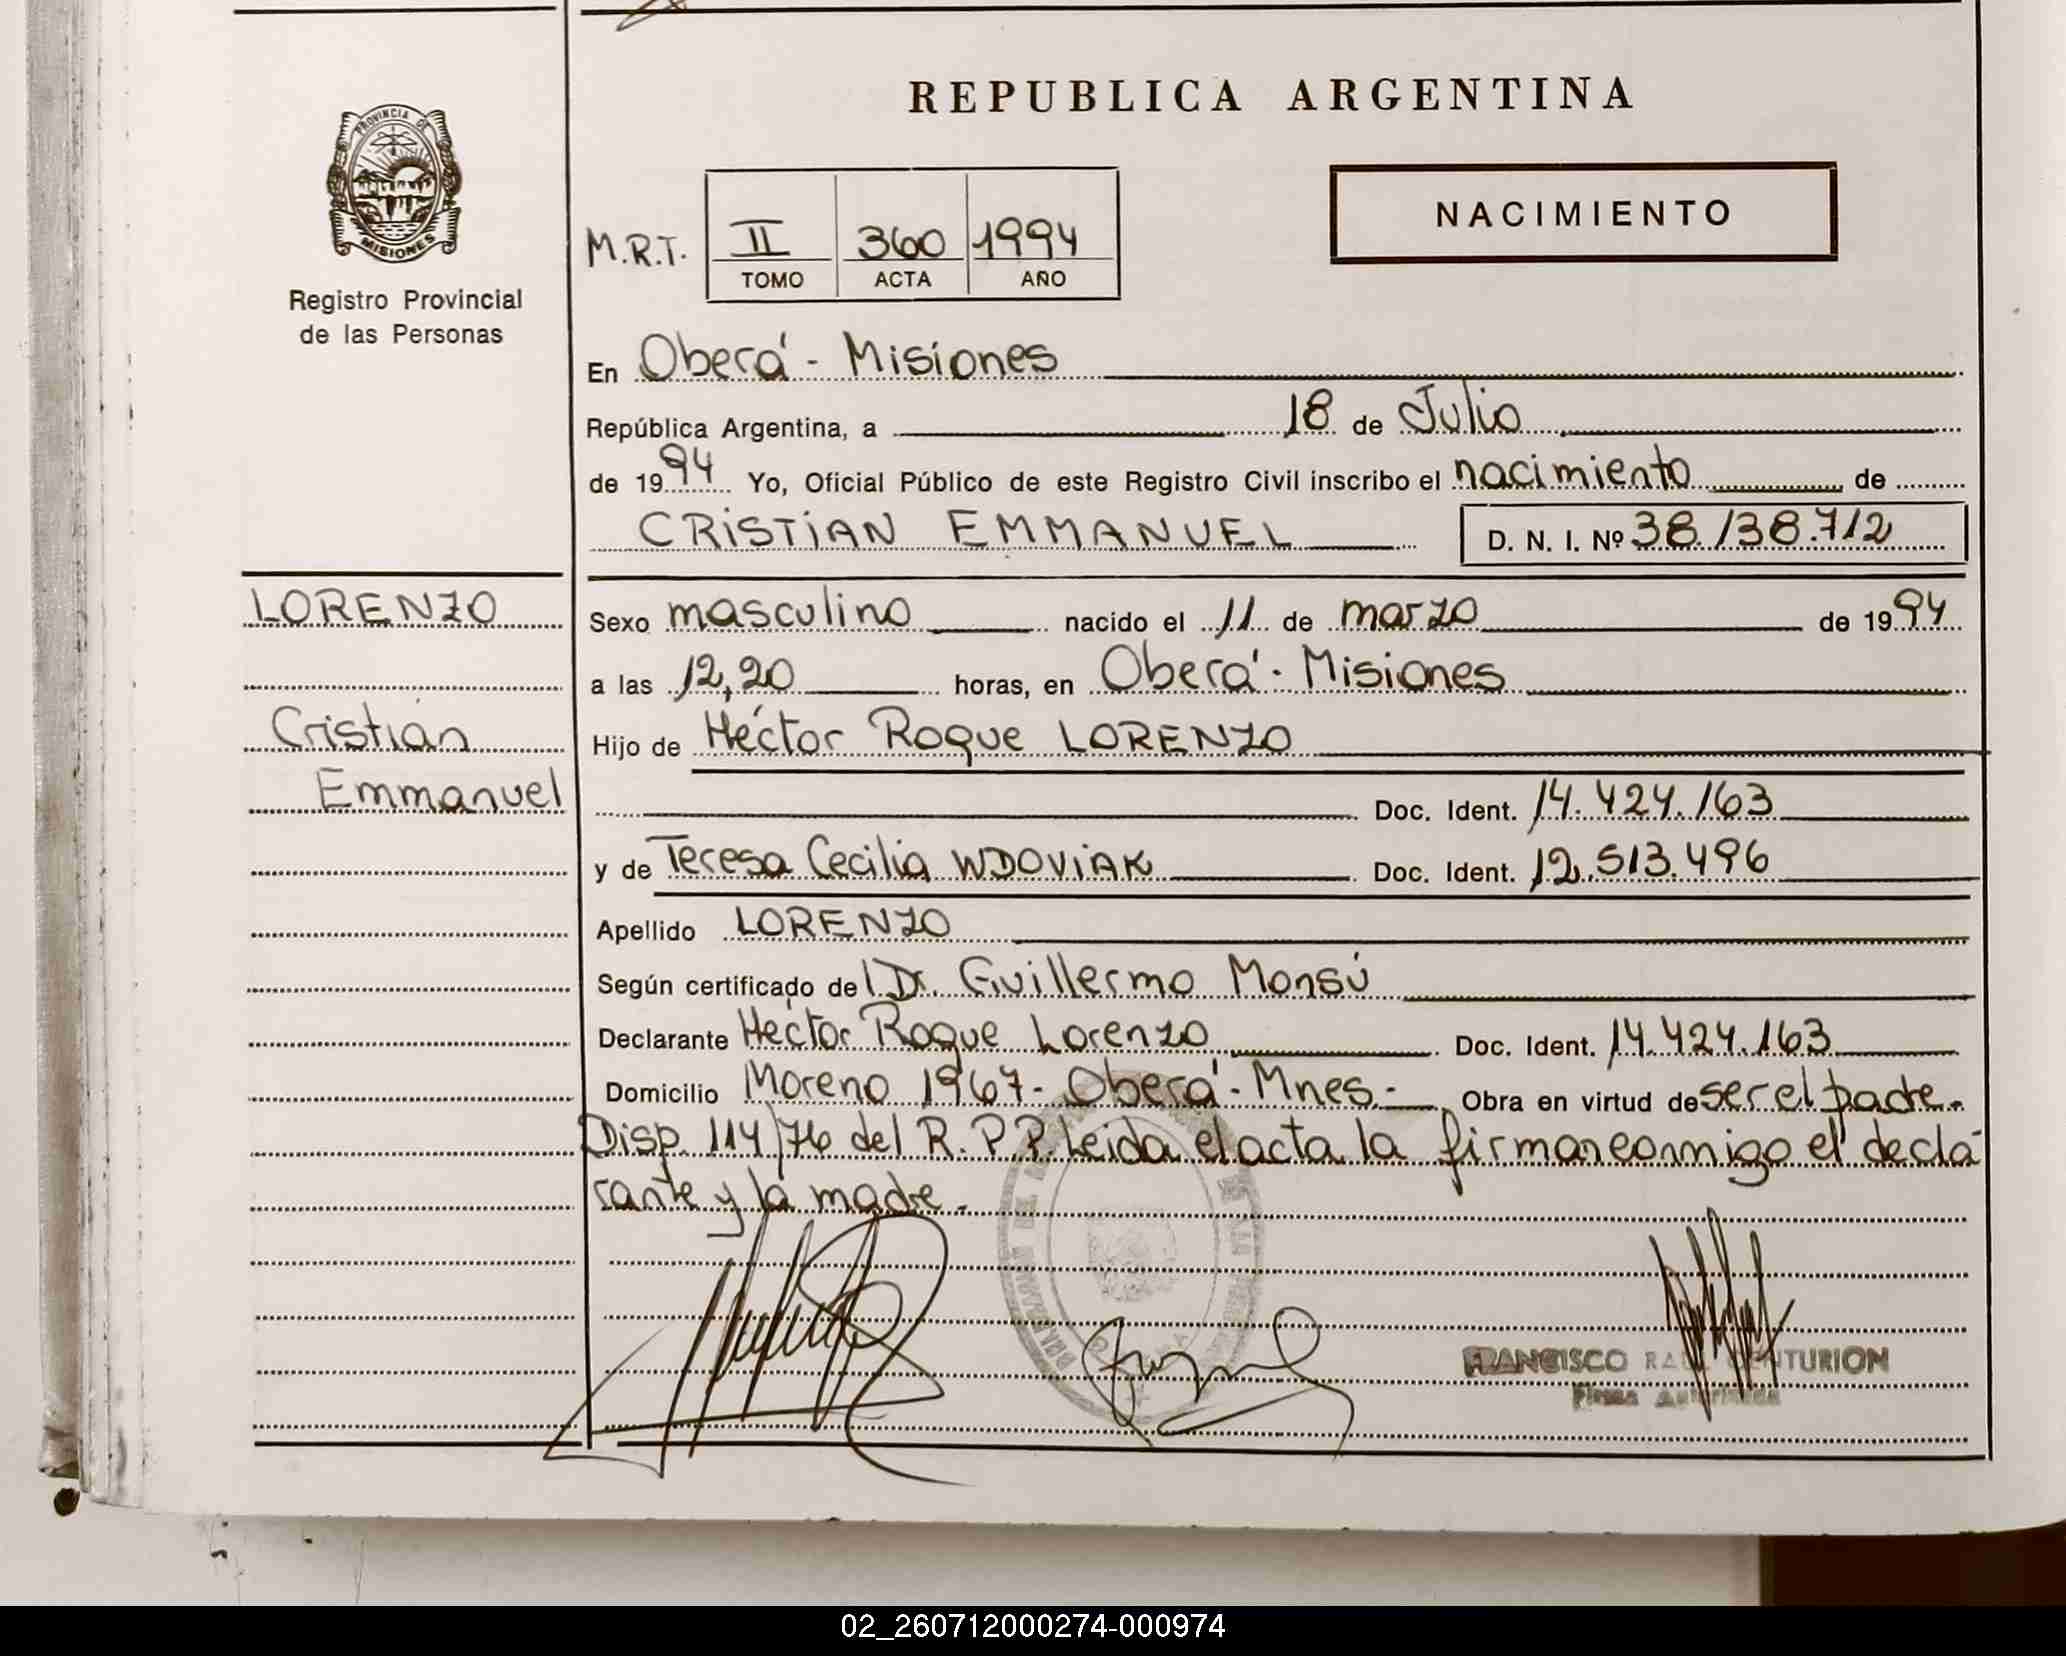 REPUBLICA ARGENTINA
PROVINCIA DE
MISIONES
Registro Provincial
de las Personas
M.R.T. II 360 1994
TOMO ACTA AÑO
NACIMIENTO
En Oberá - Misiones
República Argentina, a 18 de Julio
de 1994 Yo, Oficial Público de este Registro Civil inscribo el nacimiento de
CRISTIAN EMMANUEL D. N. I. Nº 38.138.712
LORENZO
Cristian
Emmanuel
Sexo masculino nacido el 11 de marzo de 1994
a las 12,20 horas, en Oberá - Misiones
Hijo de Héctor Roque LORENZO
Doc. Ident. 14.424.163
y de Teresa Cecilia WDOVIAK Doc. Ident. 12.513.496
Apellido LORENZO
Según certificado del Dr. Guillermo Monsú
Declarante Héctor Roque Lorenzo Doc. Ident. 14.424.163
Domicilio Moreno 1967 - Oberá - Mnes.- Obra en virtud de ser el padre.
Disp. 114/76 del R.P.P. Leida el acta la firman conmigo el decla
rante y la madre.
FRANCISCO RAUL CENTURION
Firma Autorizada
02_260712000274-000974